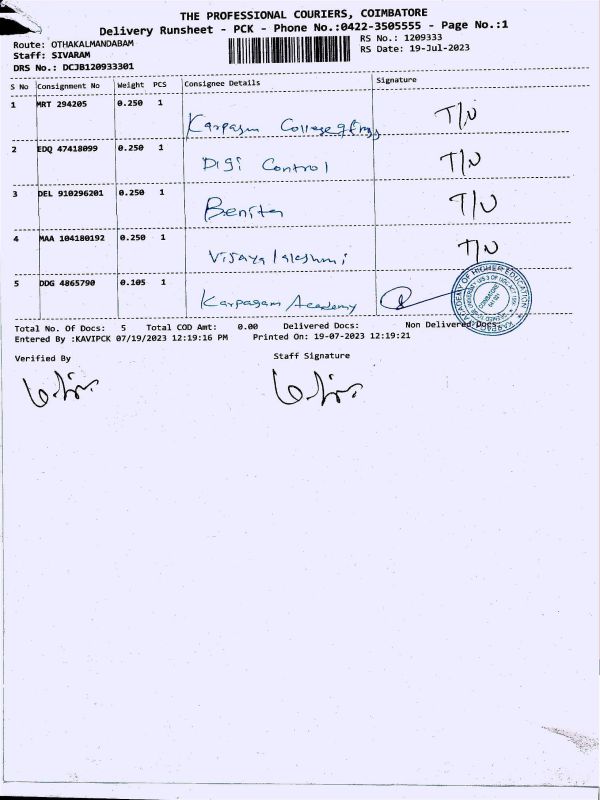 THE PROFESSIONAL COURIERS, COIMBATORE
Delivery Runsheet - PCK - Phone No.:0422-3505555 - Page No.:1
Route: OTHAKALMANDABAM
RS No.: 1209333
Staff: SIVARAM
RS Date: 19-Jul-2023
DRS No.: DCJB120933301
S No Consignment No Weight PCS Consignee Details Signature
1 MRT 294205 0.250 1 Karpagam College of T/N
2 EDQ 47418099 0.250 1 Digi Control T/N
3 DEL 910296201 0.250 1 Benita T/N
4 MAA 104180192 0.250 1 Vijayalakshmi T/N
5 DDG 4865790 0.105 1 Karpagam Academy
ACADEMY OF HIGHER EDUCATION
COIMBATORE
Total No. Of Docs: 5 Total COD Amt: 0.00 Delivered Docs: Non Delivered Docs:
Entered By :KAVIPCK 07/19/2023 12:19:16 PM Printed On: 19-07-2023 12:19:21
Verified By Staff Signature